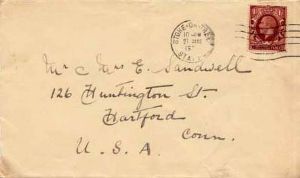 STOKE-ON-TRENT
10
21
STAFFS
Mr & Mrs E. Sandwell
126 Huntington St.
Hartford
Conn.
U. S. A.